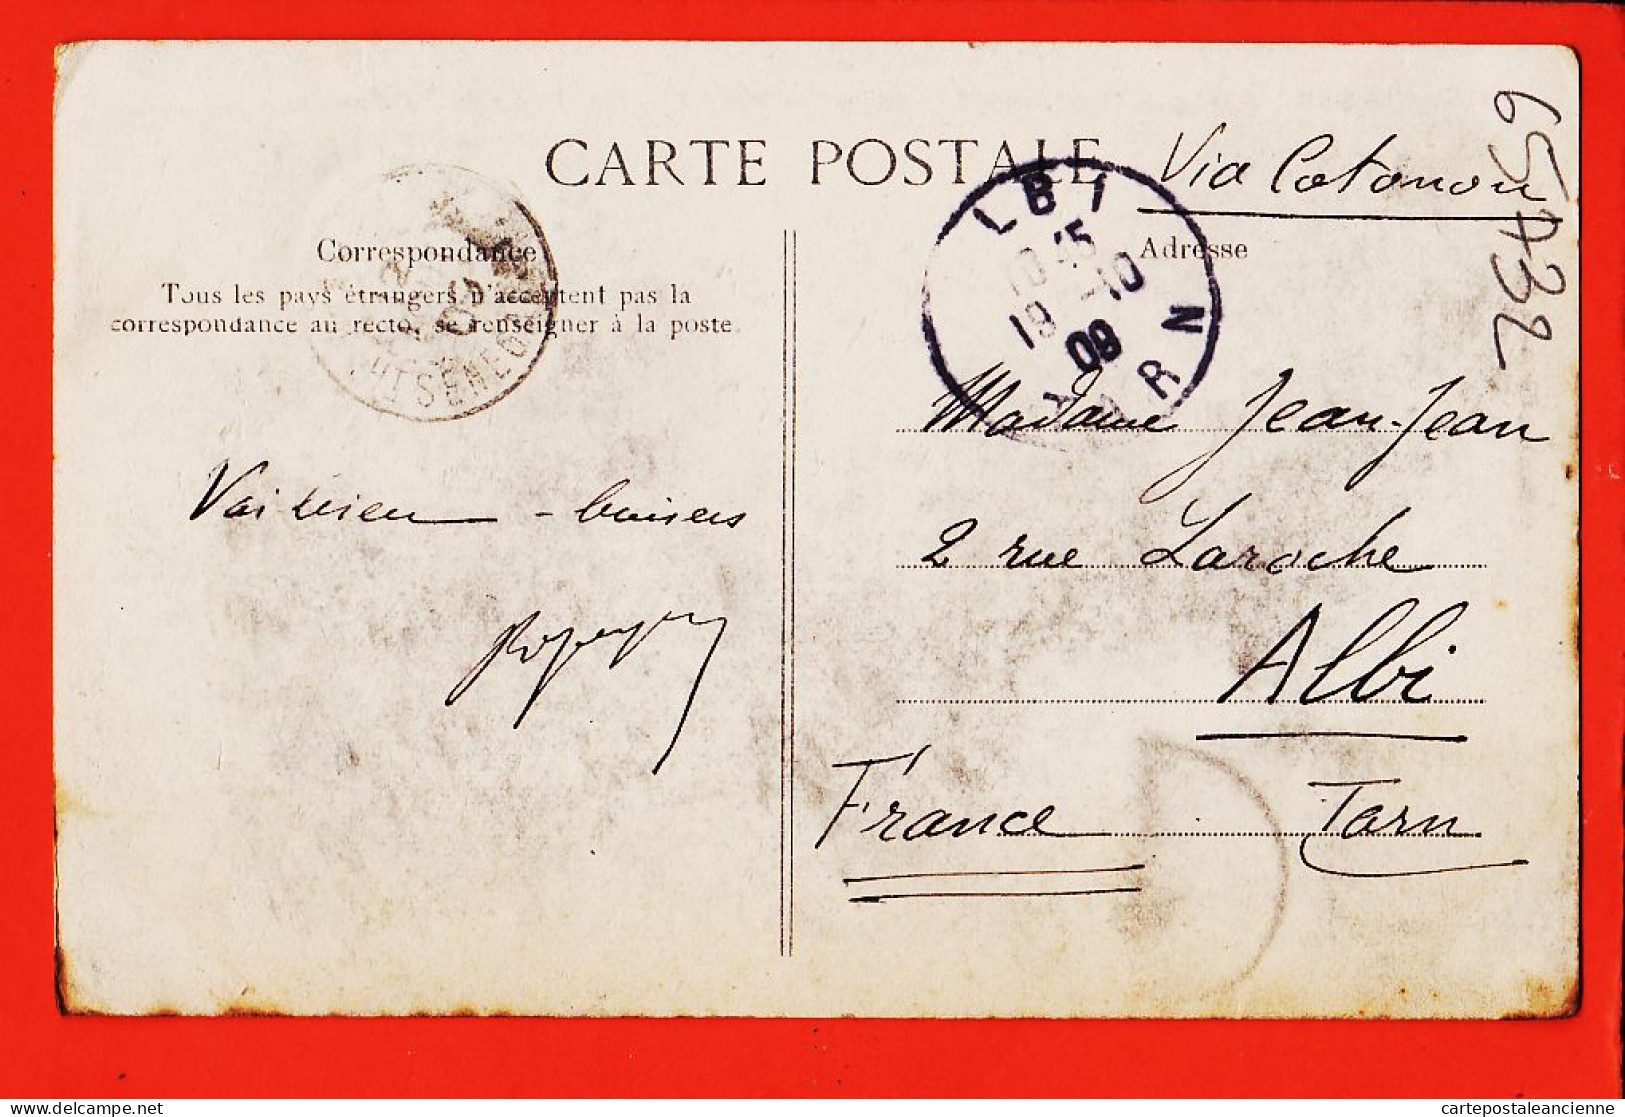 CARTE POSTALE
Via Cotonou
65432
Correspondance
Tous les pays étrangers n'acceptent pas la
correspondance au recto, se renseigner à la poste.
SÉNÉG
Adresse
LBI
10 15
19 -10
09
RN
baisers
Madame Jean-Jean
2 rue Laroche
Albi
France Tarn
delcampe.net
cartepostaleancienne